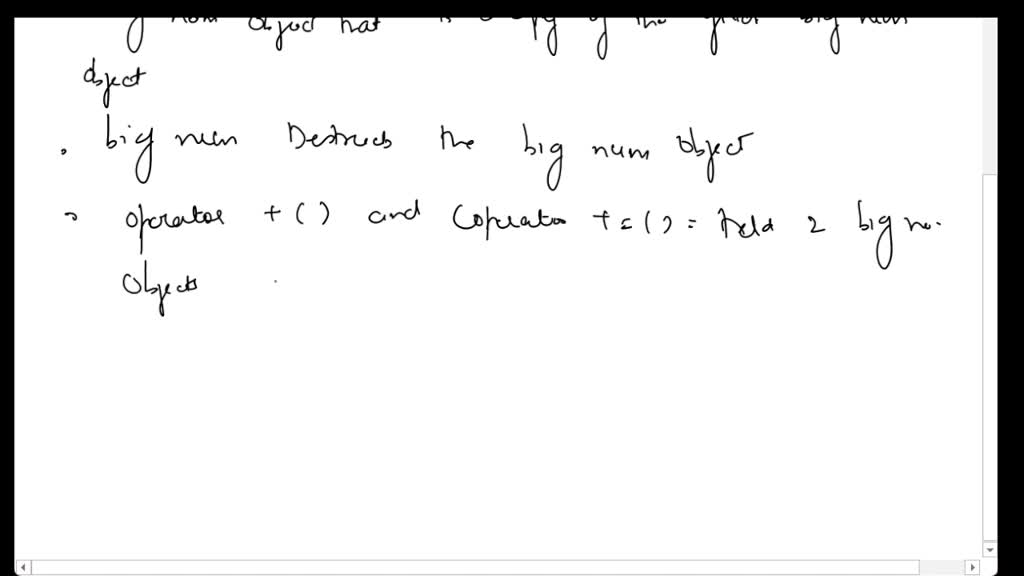 num object that is copy of the given big num
object
. big num Destructs the big num object
operator + ( ) and (operator + = ( ) = Add 2 big no.
objects